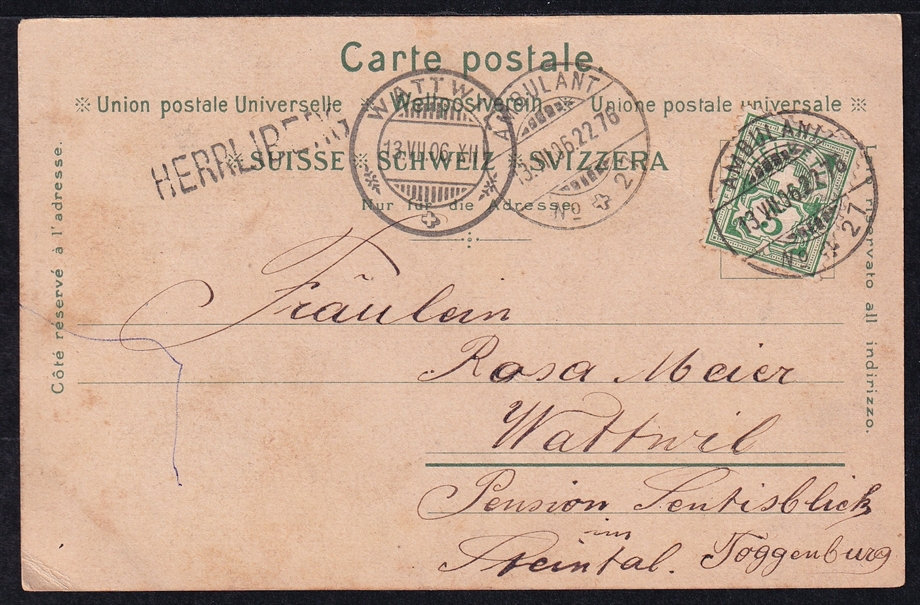 Carte postale.
※ Union postale Universelle ※ Weltpostverein ※ Unione postale universale ※
※ SUISSE ※ SCHWEIZ ※ SVIZZERA
Nur für die Adresse.
HERRLIBERG
WATTWIL
13.VII.06.XII
AMBULANT
13.VII.06.22.76
No 27
AMBULANT
13.VII.06.22.76
No 27
5
Côté réservé à l'adresse.
Lato riservato all indirizzo.
Fräulein
Rosa Meier
Wattwil
Pension Sentisblick
im
Steintal. Toggenburg